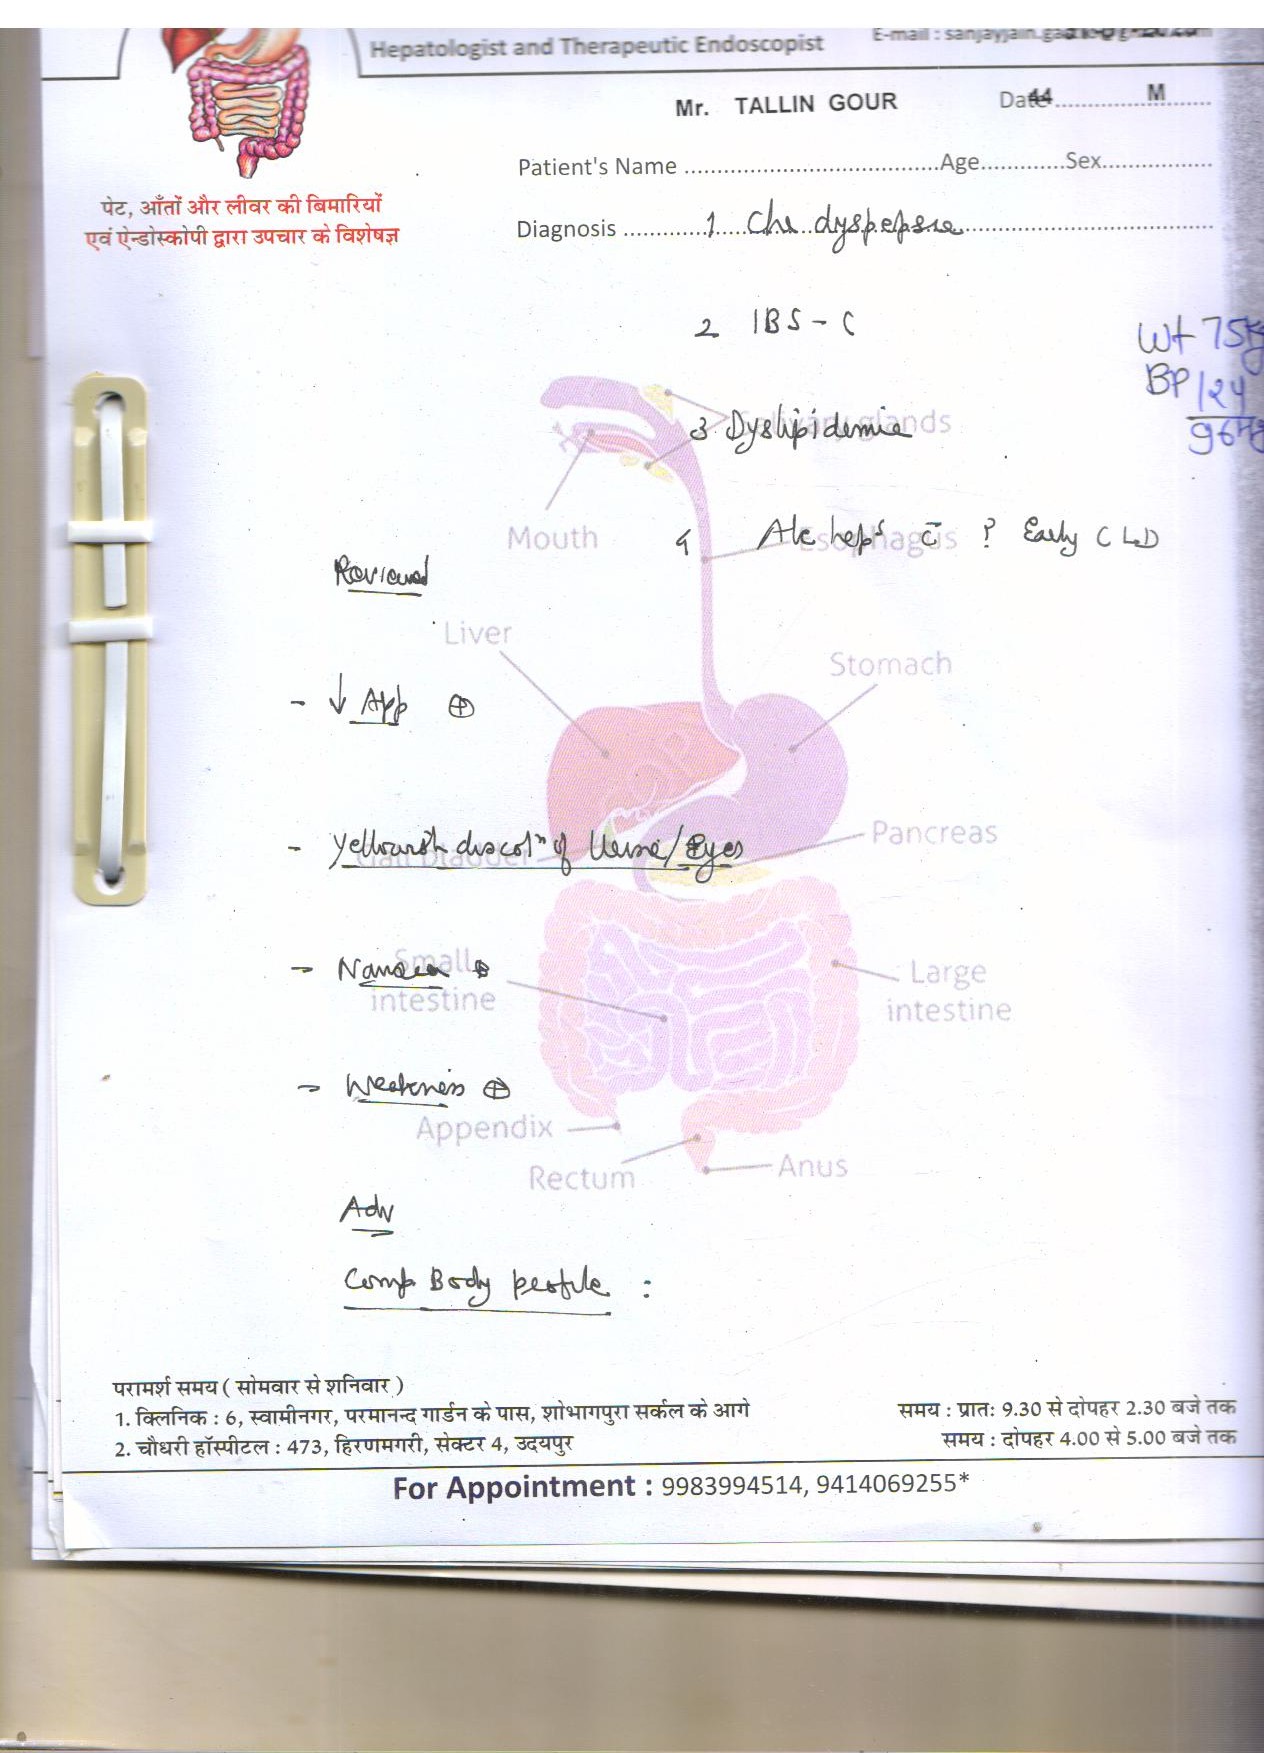 Hepatologist and Therapeutic Endoscopist
E-mail : sanjayjain.
Mr. TALLIN GOUR
Date 44 M
Patient's Name ........ Age ........ Sex ........
पेट, आँतों और लीवर की बिमारियों
एवं ऐन्डोस्कोपी द्वारा उपचार के विशेषज्ञ
Diagnosis ........ 1 Chr dyspepsia
2 IBS - C
Wt 75Kg
BP 124
96
3 Dyslipidemia
Salivary glands
Mouth
4 Alc heps c̄ ? Early CLD
Esophagus
Reviewed
Liver
Stomach
- ↓ App ⊕
Pancreas
- Yellowish discoln of Urine/Eyes
Gall Bladder
- Nausea ⊕
Small intestine
Large intestine
- Weakness ⊕
Appendix
Rectum
Anus
Adv
Comp Body profile :
परामर्श समय ( सोमवार से शनिवार )
1. क्लिनिक : 6, स्वामीनगर, परमानन्द गार्डन के पास, शोभागपुरा सर्कल के आगे समय : प्रातः 9.30 से दोपहर 2.30 बजे तक
2. चौधरी हॉस्पीटल : 473, हिरणमगरी, सेक्टर 4, उदयपुर समय : दोपहर 4.00 से 5.00 बजे तक
For Appointment : 9983994514, 9414069255*